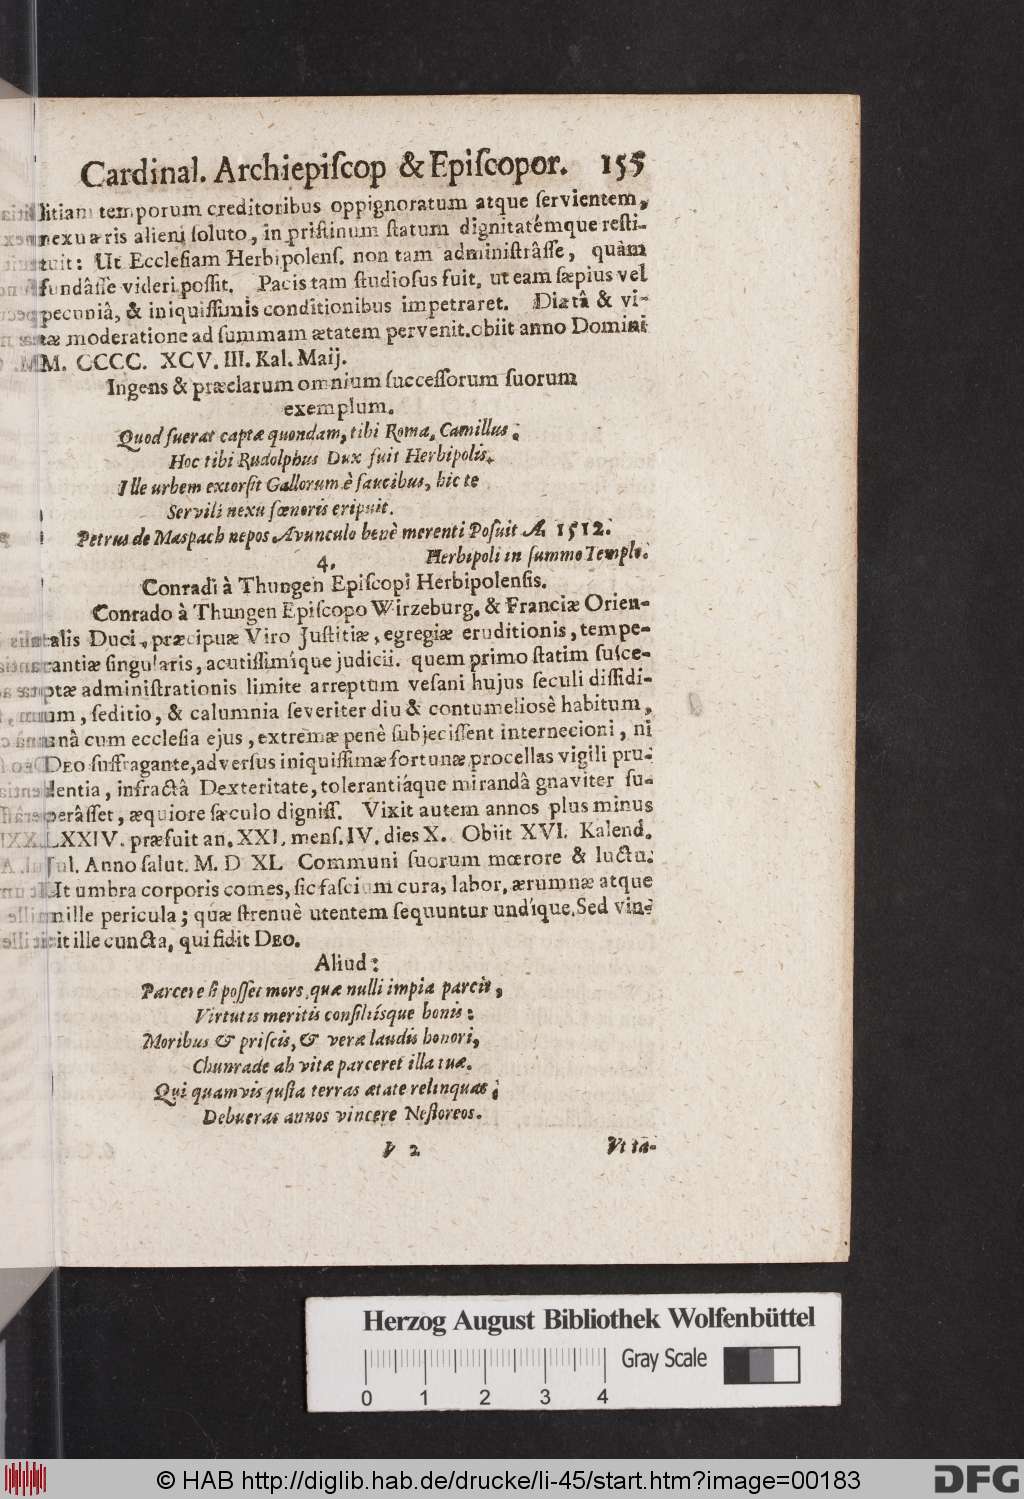 Cardinal. Archiepiſcop & Epiſcopor. 155
litiam temporum creditoribus oppignoratum atque ſervientem,
nexu æris alieni ſoluto, in priſtinum ſtatum dignitatémque reſti-
tuit: Ut Eccleſiam Herbipolenſ. non tam adminiſtrâſſe, quàm
fundâſſe videri poſſit. Pacis tam ſtudioſus fuit, ut eam ſæpius vel
pecuniâ, & iniquiſſimis conditionibus impetraret. Diætâ & vi-
tæ moderatione ad ſummam ætatem pervenit. obiit anno Domini
M. CCCC. XCV. III. Kal. Maij.
Ingens & præclarum omnium ſucceſſorum ſuorum
exemplum.
Quod fuerat captæ quondam, tibi Roma, Camillus;
Hoc tibi Rudolphus Dux fuit Herbipolis.
Ille urbem extorſit Gallorum è faucibus, hic te
Servili nexu fœnoris eripuit.
Petrus de Maspach nepos Avunculo benè merenti Poſuit A. 1512.
Herbipoli in ſummo Templo.
4.
Conradi à Thungen Epiſcopi Herbipolenſis.
Conrado à Thungen Epiſcopo Wirzeburg. & Franciæ Orien-
talis Duci, præcipuæ Viro Juſtitiæ, egregiæ eruditionis, tempe-
rantiæ ſingularis, acutiſſimíque judicii. quem primo ſtatim ſuſce-
ptæ adminiſtrationis limite arreptum veſani hujus ſeculi diſſidi-
um, ſeditio, & calumnia ſeveriter diu & contumelioſè habitum,
unâ cum eccleſia ejus, extremæ penè ſubjeciſſent internecioni, ni
DEO ſuffragante, adverſus iniquiſſimæ fortunæ procellas vigili pru-
dentia, infractâ Dexteritate, tolerantiáque mirandâ gnaviter ſu-
perâſſet, æquiore ſæculo digniſſ. Vixit autem annos plus minus
LXXIV. præfuit an. XXI. menſ. IV. dies X. Obiit XVI. Kalend.
Jul. Anno ſalut. M. D XL Communi ſuorum mœrore & luctu.
Ut umbra corporis comes, ſic faſcium cura, labor, ærumnæ atque
mille pericula; quæ ſtrenuè utentem ſequuntur undíque. Sed vin-
cit ille cuncta, qui fidit DEO.
Aliud:
Parcere ſi poſſet mors, quæ nulli impia parcit,
Virtutis meritis conſiliísque bonis:
Moribus & priſcis, & veræ laudis honori,
Chunrade ah vitæ parceret illa tuæ.
Qui quamvis juſta terras ætate relinquas;
Debueras annos vincere Neſtoreos.
V 2 Ut ta-
Herzog August Bibliothek Wolfenbüttel
Gray Scale
0 1 2 3 4
© HAB http://diglib.hab.de/drucke/li-45/start.htm?image=00183
DFG